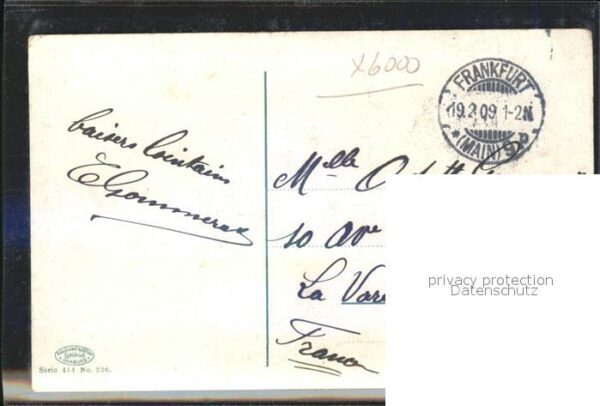 x6000
FRANKFURT
19.2.09. 1-2N
* (MAIN) 9 P.
baisers lointains
Mlle
10 Ave
La Vare
France
privacy protection
Datenschutz
Serie 414 No. 236.